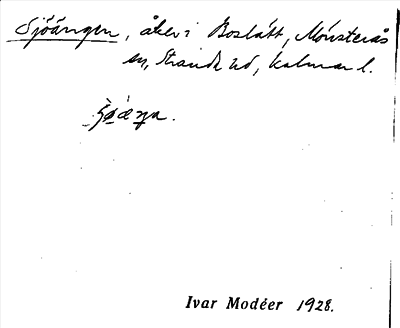 Sjöängen, åker i Boslätt, Mönsterås
sn, Stranda hd, Kalmar l.
Ivar Modéer 1928.